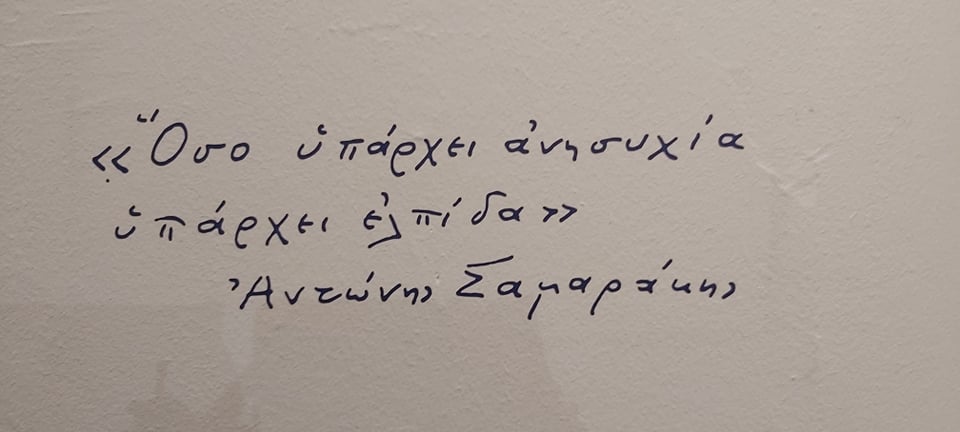 «Ὅσο ὑπάρχει ἀνησυχία
ὑπάρχει ἐλπίδα»
Ἀντώνης Σαμαράκης